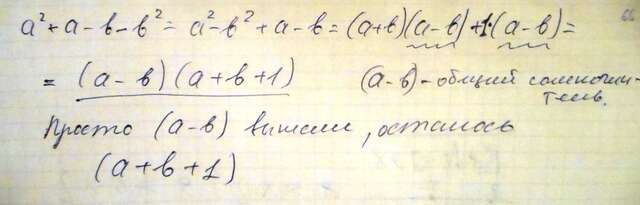 a² + a - b - b² = a² - b² + a - b = (a+b)(a-b) + 1·(a-b) =
= (a-b)(a+b+1) (a-b) - общий сомножи-
тель.
Просто (a-b) вынесли, осталось
(a+b+1)